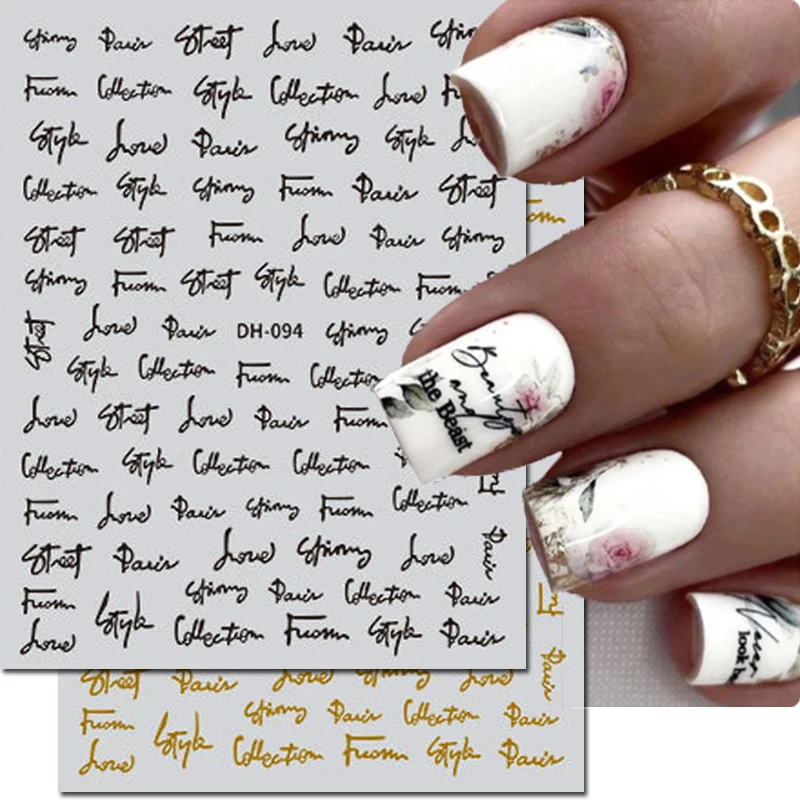 Shinny Paris Street Love Paris
Fuomn Collection Style Collection Love
Style Love Paris Shinny Style
Collection Style Shinny Fuomn Paris Street
Street Street Fuomn Love Paris Shinny
Shinny Fuomn Street Style Collection Fuomn
Street Love Paris DH-094 Shinny
Style Collection Fuomn Collection
Love Street Love Paris Fuomn
Collection Style Collection Collection
Fuomn Love Paris Shinny Fuomn Collection
Street Paris Love Shinny Love Paris
Fuomn Style Shinny Paris Collection Paris
Love Collection Fuomn Style Paris
Street Paris Love Paris
Fuomn Style Shinny Paris Collection Paris
Love Collection Fuomn Style Paris
Beauty
and
the Beast
Never
look